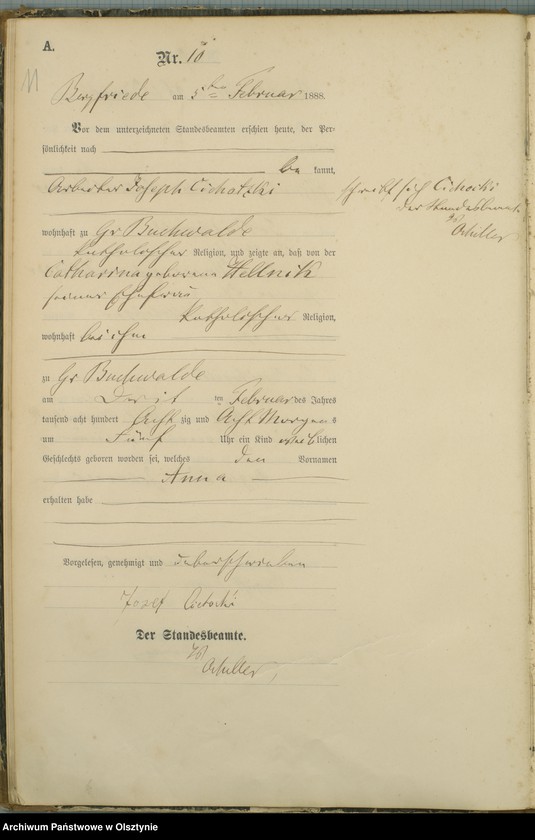 A.
Nr. 10
11
Bergfriede am 5ten Februar 1888.
Vor dem unterzeichneten Standesbeamten erschien heute, der Per-
sönlichkeit nach
be kannt,
Arbeiter Joseph Cichotzki
schreibt sich Cichocki
der Standesbeamte
Schiller
wohnhaft zu Gr Buchwalde
katholischer Religion, und zeigte an, daß von der
Catharina geborene Wellnik
seiner Ehefrau
katholischer Religion,
wohnhaft bei ihm
zu Gr Buchwalde
am ten Februar des Jahres
tausend acht hundert Acht zig und Acht Morgens
um Fünf Uhr ein Kind weiblichen
Geschlechts geboren worden sei, welches den Vornamen
Anna
erhalten habe
Vorgelesen, genehmigt und unterschrieben
Josef
Der Standesbeamte.
Schiller
Archiwum Państwowe w Olsztynie